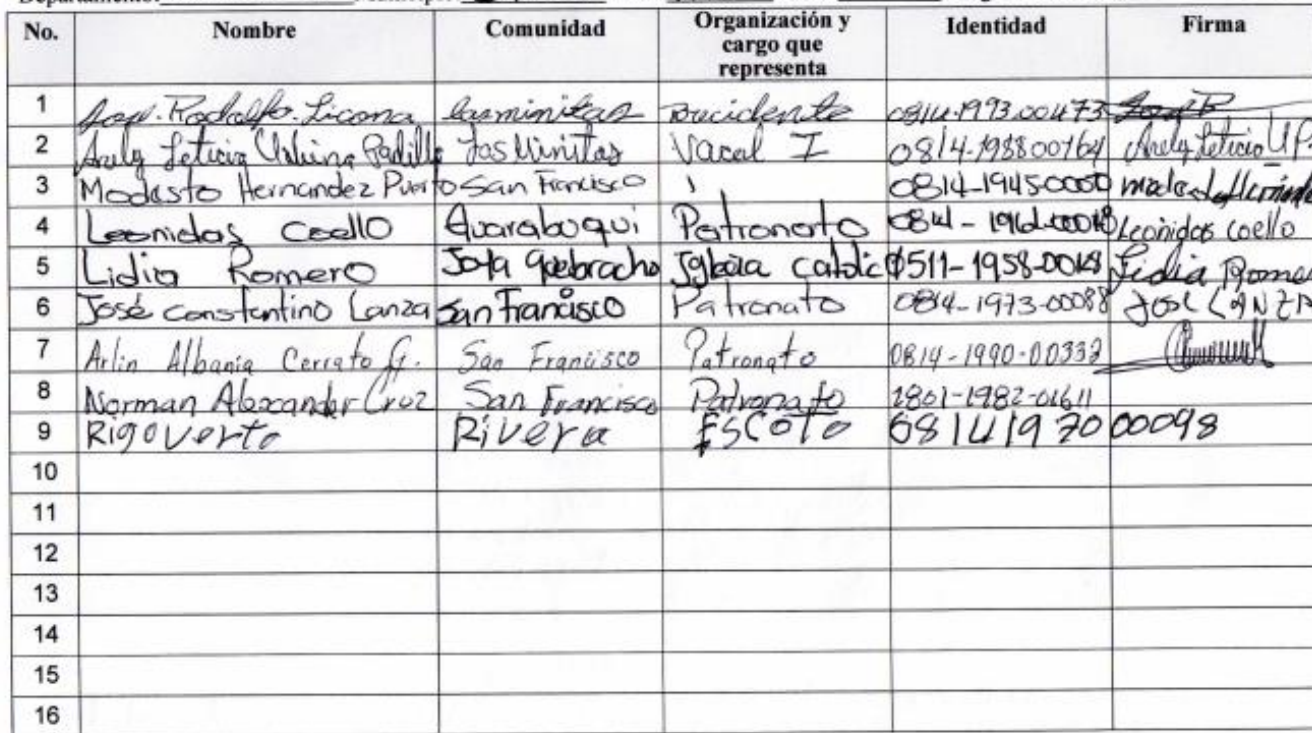 No. Nombre Comunidad Organización y cargo que representa Identidad Firma
1 Rodolfo Licona Las minitas 0814-1993-00473
2 Arely Leticia Urbina Padilla Las Minitas Vacal I 0814-1988 00164 Arely Leticia U P.
3 Modesto Hernandez Puerto San Francisco
4 Leonidas Coello Guarabuqui Patronato Leonidas coello
5 Lidia Romero Jolla quebracho Iglecia catolic 0511-1958-0018 Lidia Romer
6 José constantino Lanza San Francisco Patronato 0814-1973-00088 José LANZA
7 Arlin Albania Cerrato G. San Francisco Patronato 0814-1990-00332
8 Norman Alexander Cruz San Francisco Patronato 1801-1982-01611
9 Rigoverto Rivera Escoto 0814197000098
10
11
12
13
14
15
16